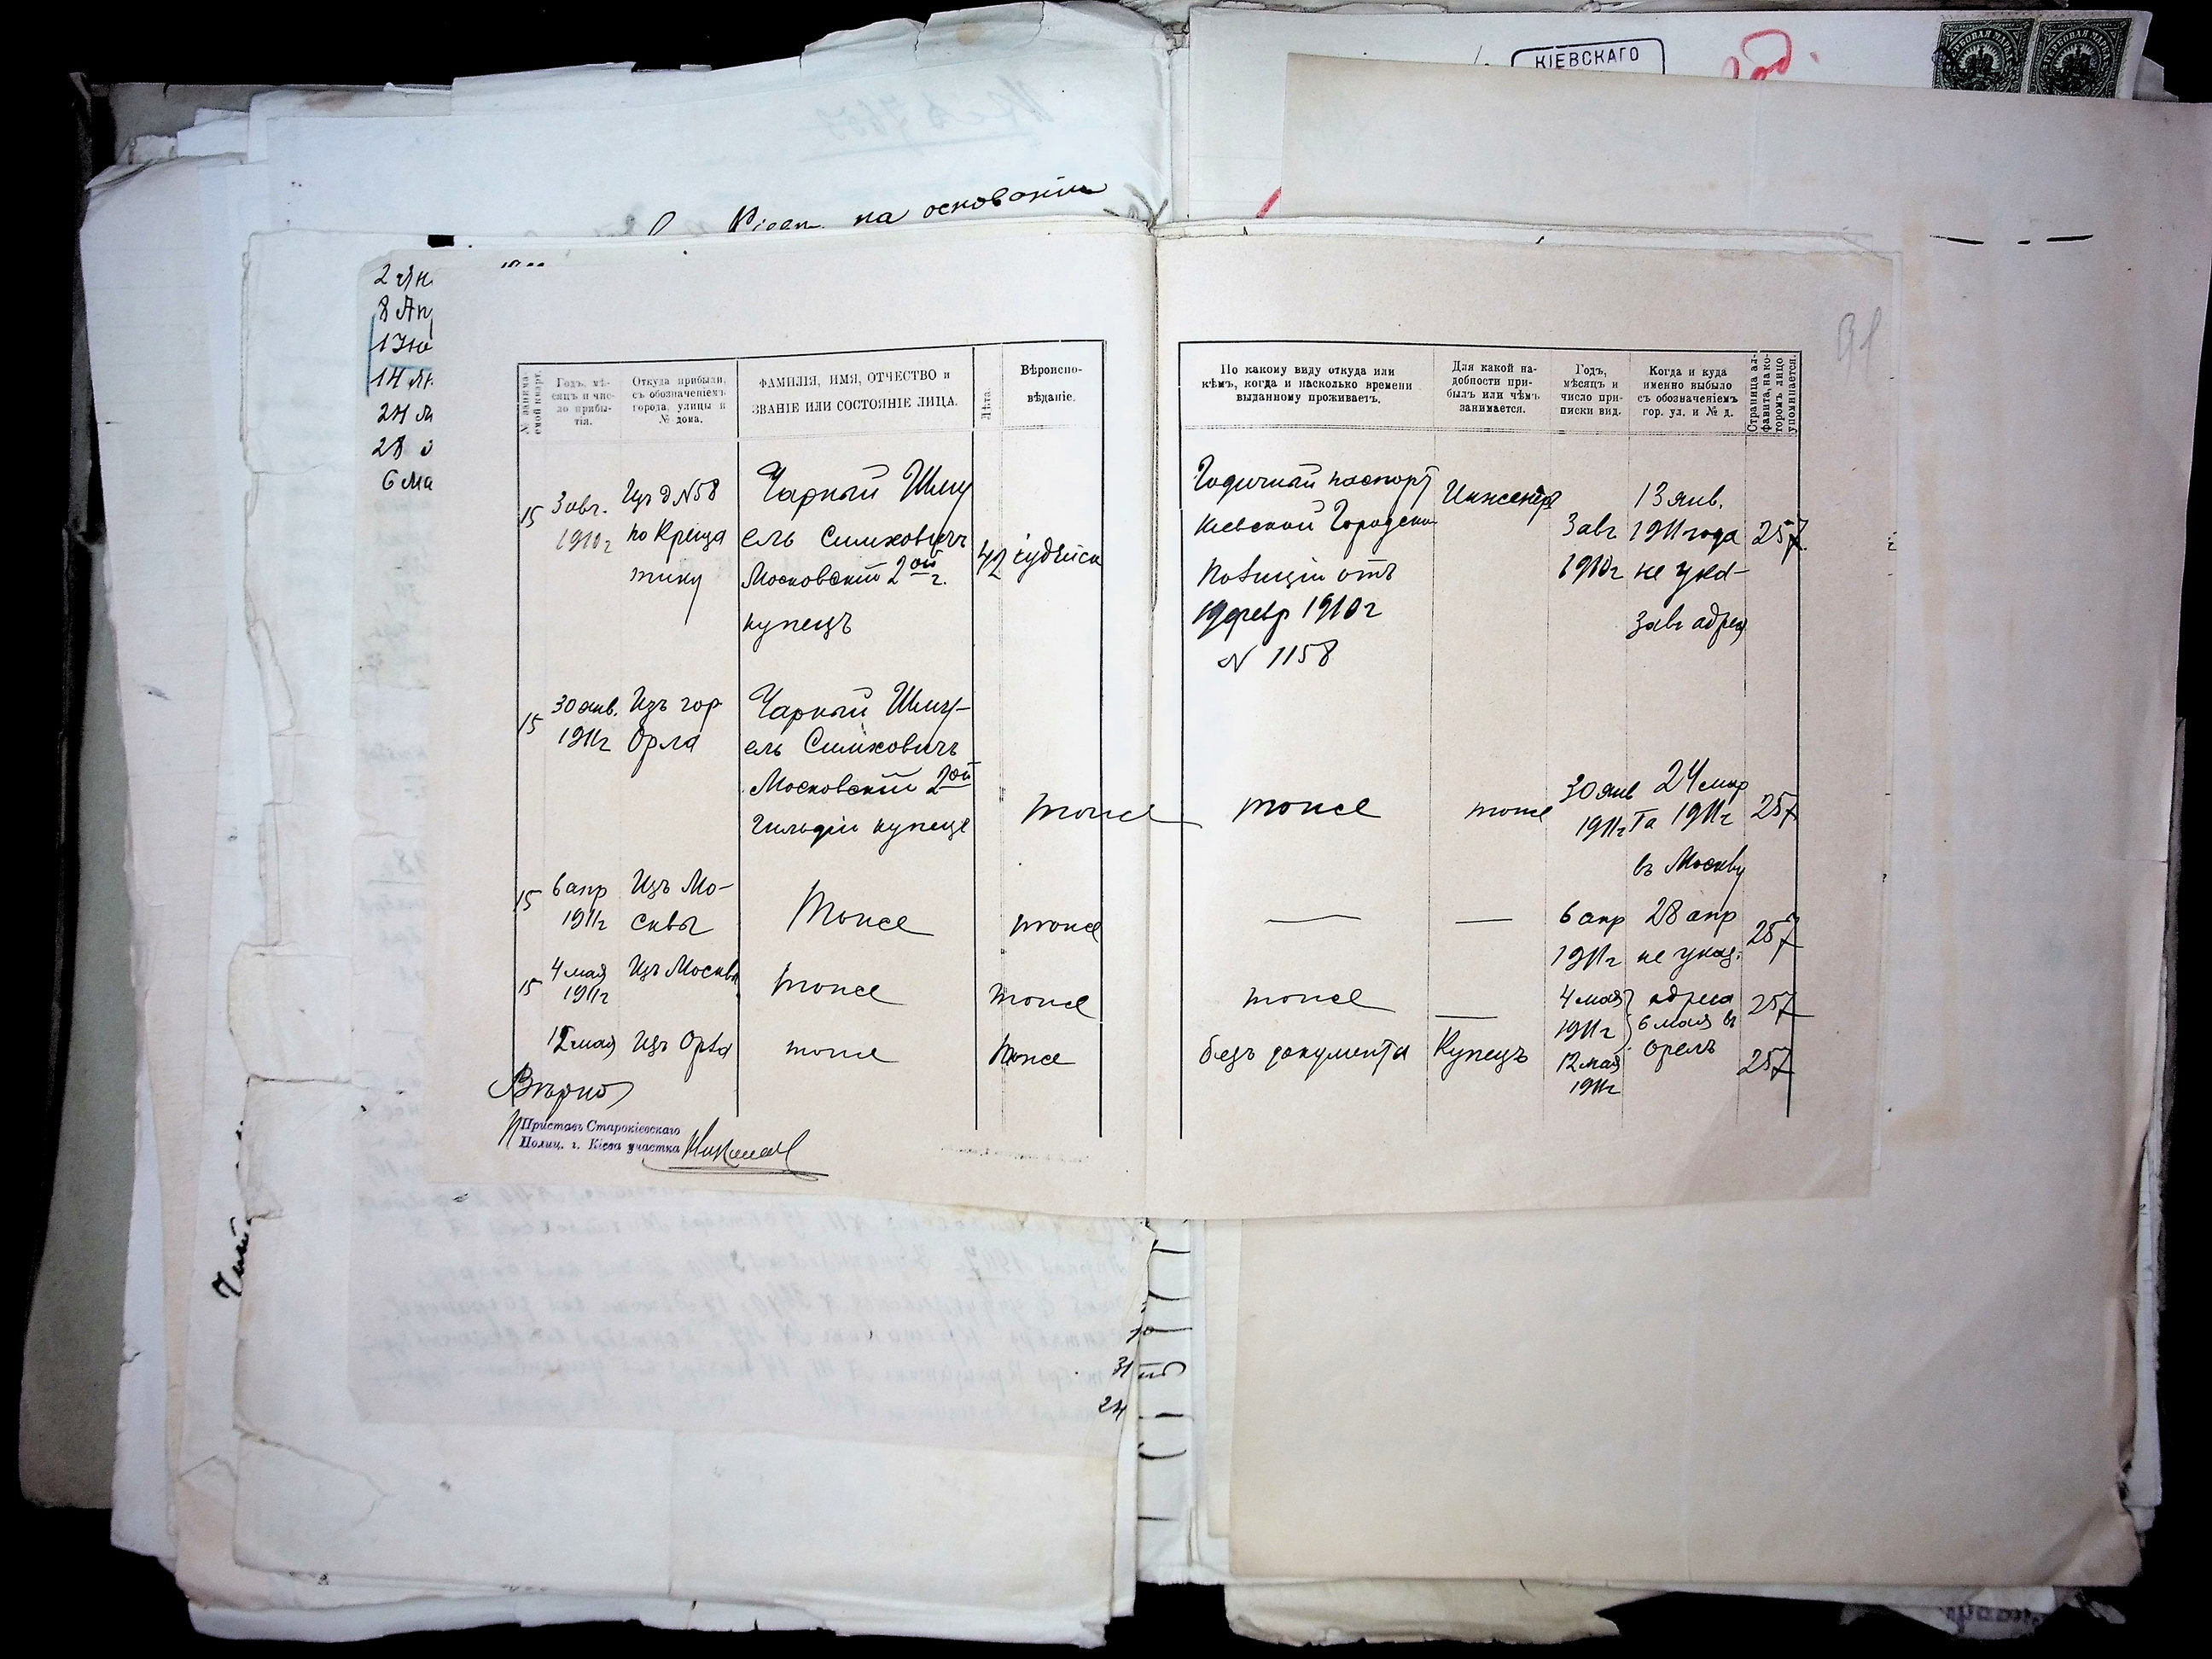 КІЕВСКАГО
на основаніи
2 Ян
8 Ап
1 Ію
14
24
28
6 Ма
№ занима
емой кварт.
Годъ, мѣ-
сяцъ и чис-
ло прибы-
тія.
Откуда прибыли,
съ обозначеніемъ
города, улицы и
№ дома.
ФАМИЛІЯ, ИМЯ, ОТЧЕСТВО и
ЗВАНІЕ ИЛИ СОСТОЯНІЕ ЛИЦА.
Лѣта.
Вѣроиспо-
вѣданіе.
По какому виду откуда или
кѣмъ, когда и насколько времени
выданному проживаетъ.
Для какой на-
добности при-
былъ или чѣмъ
занимается.
Годъ,
мѣсяцъ и
число при-
писки вид.
Когда и куда
именно выбыло
съ обозначеніемъ
гор. ул. и № д.
Страница ал-
фавита, на ко-
торомъ лицо
упоминается.
15
3 авг.
1910 г
Изъ д N 58
по Креща
тику
Чарный Шму
ель Симховичъ
Московскій 2ой г.
купецъ
42
іудейск
Годичный паспорт
Кіевской Городской
Полиціи отъ
19 февр 1910 г
N 1158
Инженеръ
3 авг
1910 г
13 янв.
1911 года
не ука-
залъ адрес
257
15
30 янв.
1911 г
Изъ гор
Орла
Чарный Шму-
ель Симховичъ
Московскій 2ой
Гильдіи купецъ
тоже
тоже
тоже
30 янв
1911 г
24 мар
та 1911 г
въ Москву
257
15
6 апр
1911 г
Изъ Мо-
сквы
Тоже
тоже
—
—
6 апр
1911 г
28 апр
не указ.
адреса
257
15
4 мая
1911 г
Изъ Москвы
тоже
тоже
тоже
—
4 мая
1911 г
6 мая въ
Орелъ
257
12 мая
Изъ Орла
тоже
тоже
безъ документа
Купецъ
12 мая
1911 г
257
Вѣрно
Приставъ Старокіевскаго
Полиц. г. Кіева участка
31
24